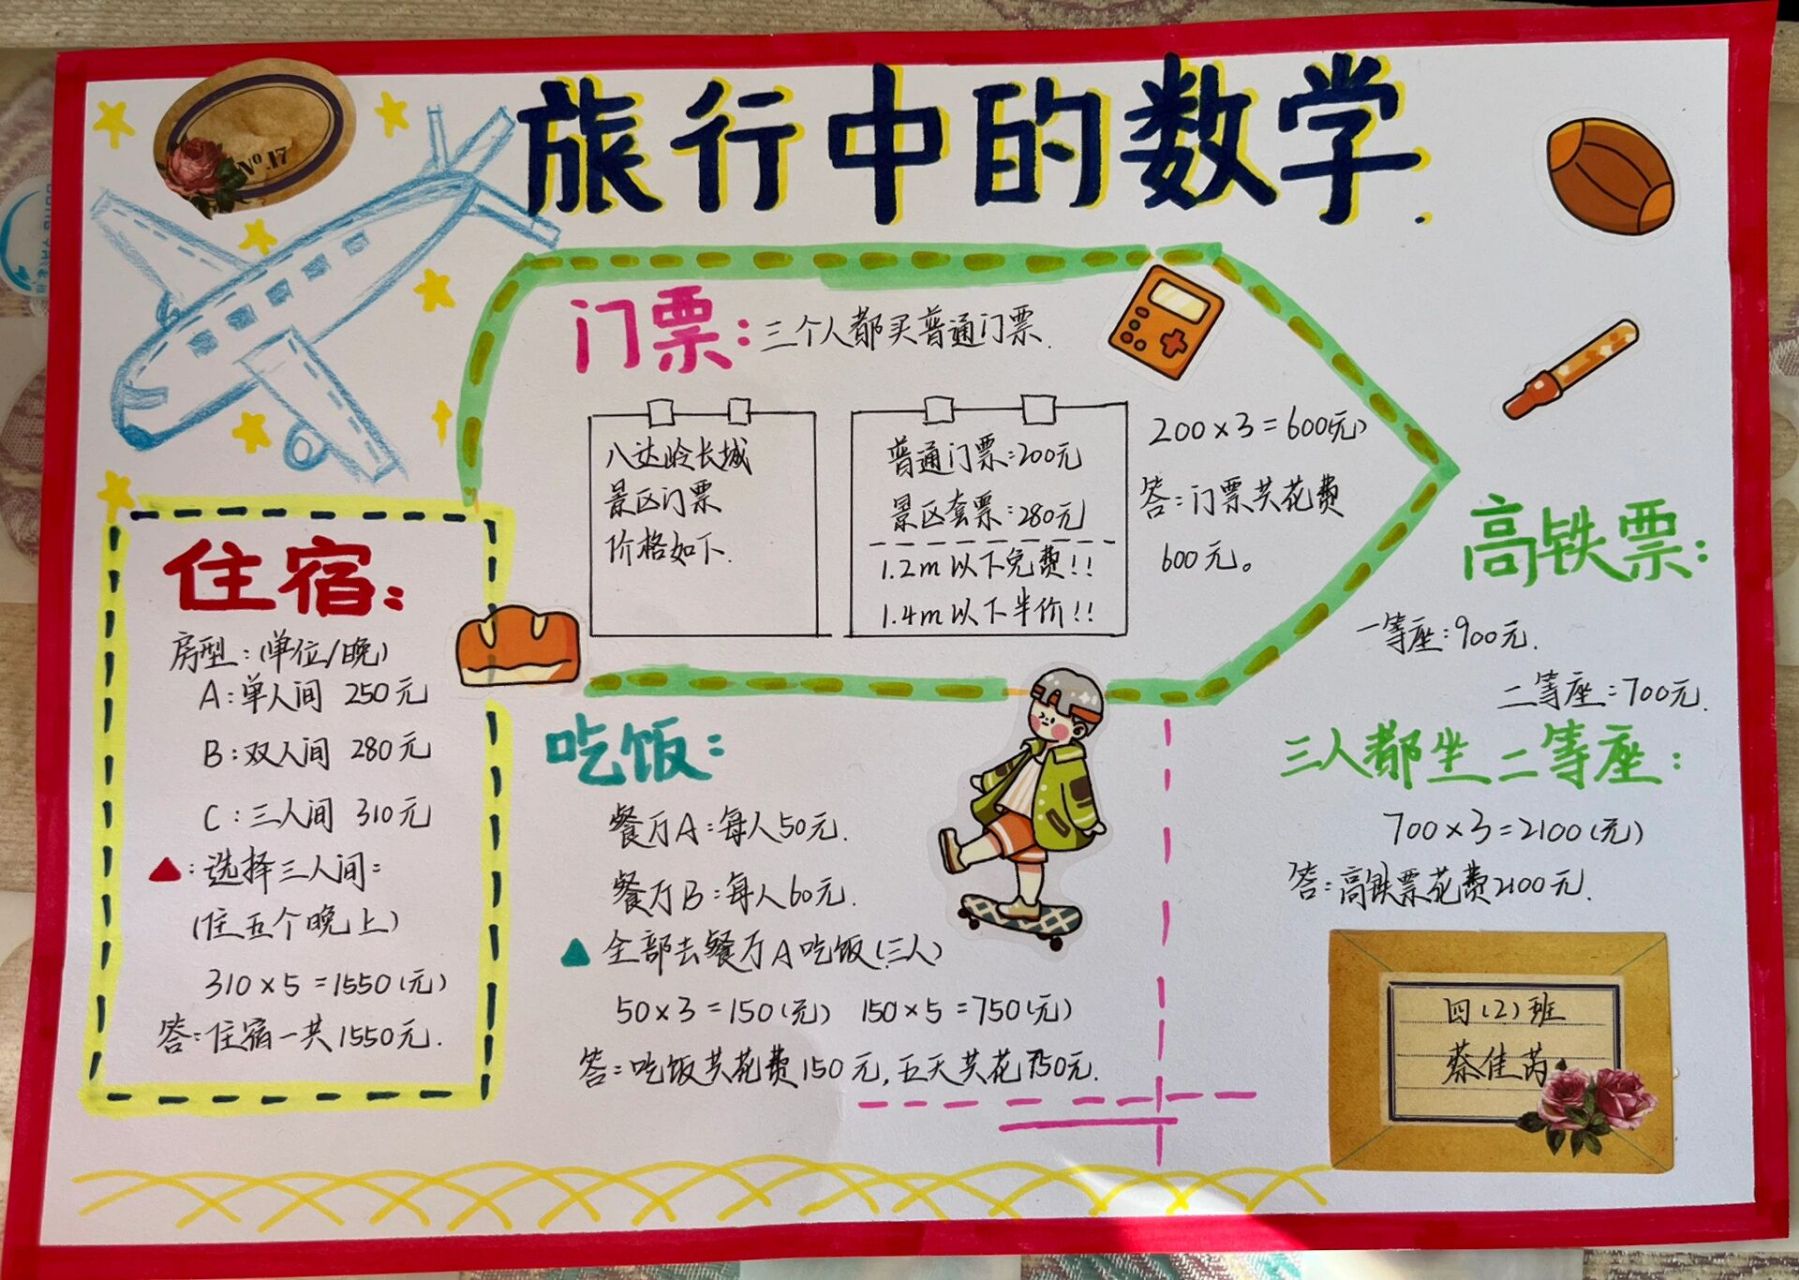 旅行中的数学.
No 17
门票:三个人都买普通门票.
八达岭长城
景区门票
价格如下.
普通门票:200元
景区套票:280元
1.2m以下免费!!
1.4m以下半价!!
200×3=600(元)
答:门票共花费
600元。
住宿:
房型:(单位/晚)
A:单人间 250元
B:双人间 280元
C:三人间 310元
▲:选择三人间:
(住五个晚上)
310×5=1550(元)
答:住宿一共1550元.
吃饭:
餐厅A:每人50元.
餐厅B:每人60元.
▲全部去餐厅A吃饭(三人)
50×3=150(元) 150×5=750(元)
答:吃饭共花费150元,五天共花750元.
高铁票:
一等座:900元.
二等座:700元.
三人都坐二等座:
700×3=2100(元)
答:高铁票花费2100元.
四(2)班
蔡佳芮